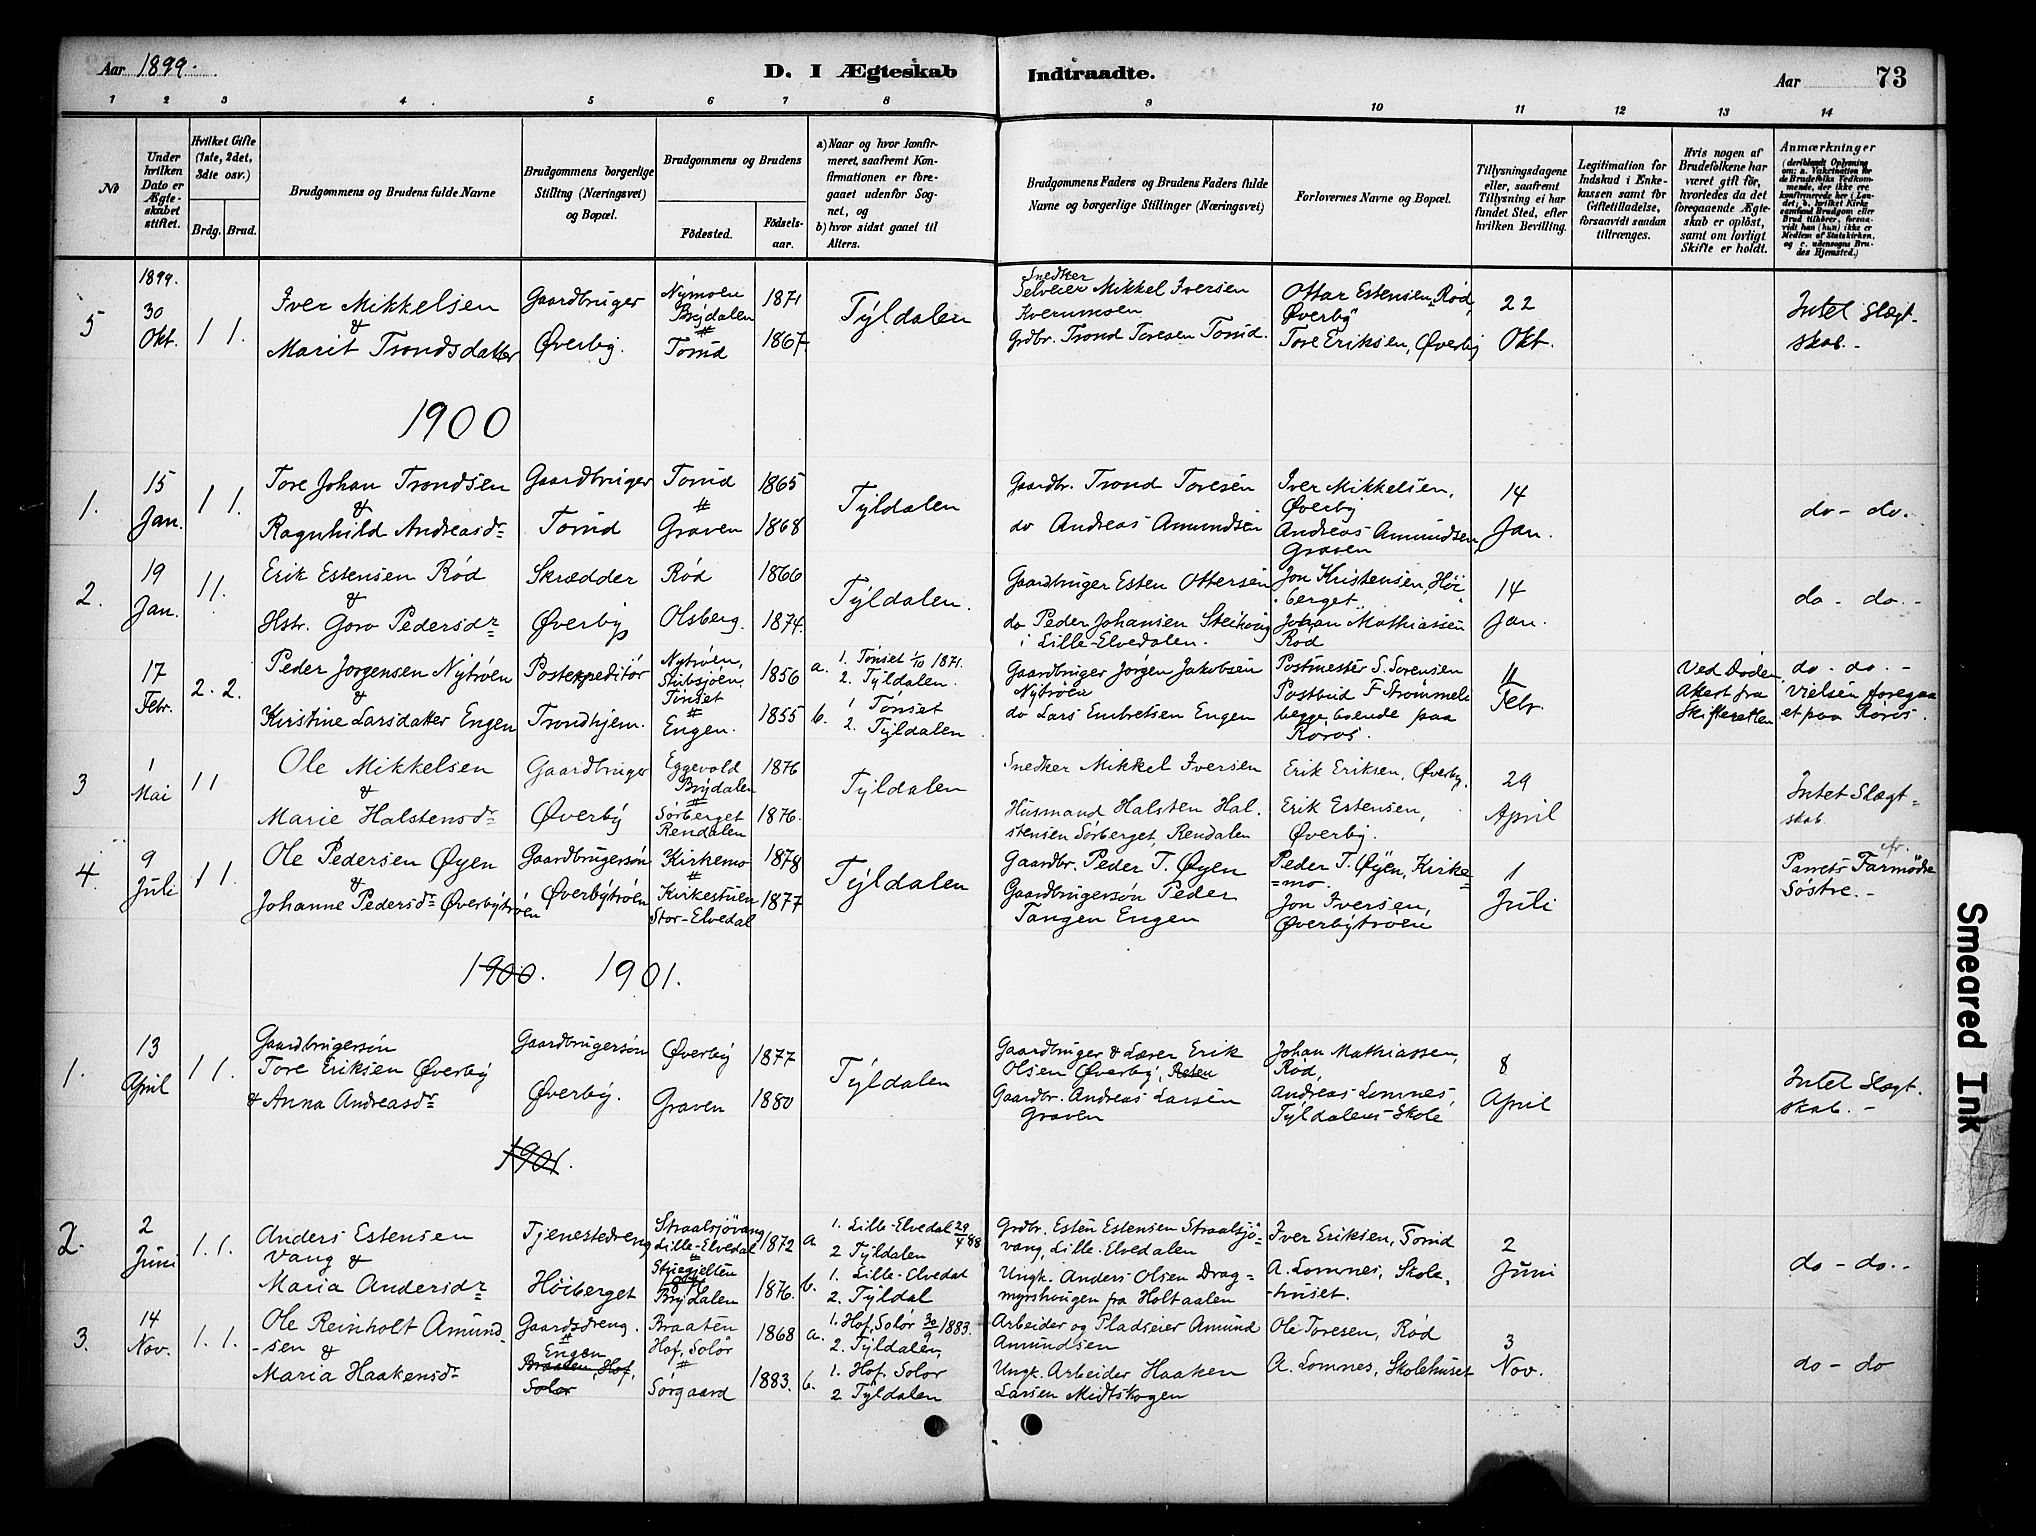 Aar 1899.
D. I Ægteskab
Indtraadte.
Aar
73
1 2 3 4 5 6 7 8 9 10 11 12 13 14
No
Under hvilken Dato er Ægteskabet stiftet.
Hvilket Gifte (1ste, 2det, 3die osv.)
Brdg. Brud.
Brudgommens og Brudens fulde Navne
Brudgommens borgerlige Stilling (Næringsvei) og Bopæl.
Brudgommens og Brudens
Födested.
Födsels-aar.
a) Naar og hvor konfirmeret, saafremt Konfirmationen er foregaaet udenfor Sognet, og
b) hvor sidst gaaet til Alters.
Brudgommens Faders og Brudens Faders fulde Navne og borgerlige Stillinger (Næringsvei)
Forlovernes Navne og Bopæl.
Tillysningsdagene eller, saafremt Tillysning ei har fundet Sted, efter hvilken Bevilling.
Legitimation for Indskud i Enkekassen samt for Giftetilladelse, forsaavidt saadan tiltrænges.
Hvis nogen af Brudefolkene har været gift för, hvorledes da det foregaaende Ægteskab er oplöst, samt om lovligt Skifte er holdt.
Anmærkninger
(deriblandt Oplysning om: a. Vakcination for de Brudefolks Vedkommende, der ikke ere konfirmerede her i Landet; b. hvilket Kirkesamfund Brudgom eller Brud tilhörer, forsaavidt han (hun) ikke er Medlem af Statskirken, og c. udensogns Brudes Hjemsted.)
1899.
5
30 Okt.
1 1.
Iver Mikkelsen
&
Marit Trondsdatter
Gaardbruger
Øverby.
Nymoen
Brydalen
#
Tonud
1871
1867.
Tyldalen
Snedker
Selveier Mikkel Iversen
Kvernmoen
Grdbr. Trond Toresen Tonud.
Ottar Estensen, Rød,
Øverby
Tore Eriksen, Øverby
22
Okt.
Intet Slægt-
skab.-
1900
1.
15
Jan.
1 1.
Tore Johan Trondsen
&
Ragnhild Andreasdr
Gaardbruger
Tonud
Tonud
#
Graven
1865
1868
Tyldalen
Gaardbr. Trond Toresen
do Andreas Amundsen
Iver Mikkelsen,
Øverby
Andreas Amundsen
Graven
14
Jan.
do - do.
2.
19
Jan.
1 1.
Erik Estensen Rød
&
Hstr. Goro Pedersdr
Skrædder
Øverby
Rød
Olsberg.
1866
1874.
Tyldalen.
Gaardbruger Esten Ottersen
do Peder Johansen Steihovig
i Lille-Elvedalen.
Jon Kristensen, Høi-
berget.
Johan Mathiassen
Rød
14
Jan.
do - do.-
17
Febr.
2. 2.
Peder Jorgensen Nytrøen
&
Kirstine Larsdatter Engen
Postexpeditør
Trondhjem.
Nytrøen,
Stubsjøen,
Tønset
#
Engen.
1856
1855
a. 1. Tønset 1/10 1871.
2. Tyldalen.
b. 1 Tønset
2. Tyldalen
Gaardbruger Jørgen Jakobsen
Nytrøen
do Lars Embretsen Engen
Postmester S. Sorensen
Postbud F Strømmeli
begge boende paa
Roros.
4
Febr.
Ved Døden.
Attest fra
Skifteretten
do - do.-
Vielsen foregaa
et paa Røros.
3
1
Mai
1 1
Ole Mikkelsen
&
Marie Halstensdr
Gaardbruger
Øverby
Eggevold
Brydalen
#
Sørberget
Rendalen
1876
1876.
Tyldalen
Snedker Mikkel Iversen
Husmand Halsten Hal-
stensen Sørberget, Rendalen
Erik Eriksen, Øverby.
Erik Estensen,
Øverby.
29
April
Intet Slægt-
skab
4.
9
Juli
1 1
Ole Pedersen Øyen
&
Johanne Pedersdr Øverbytrøen
Gaardbrugersøn
Øverbytrøen
Kirkemo
#
Kirkestuen
Stor-Elvedal
1878
1877
Tyldalen
Gaardbr. Peder T. Øyen
Gaardbrugersøn Peder
Tangen Engen
Peder T. Øyen, Kirke-
mo.
Jon Iversen,
Øverbytrøen
1
Juli
Parrets Farmødre
Søstre.-
1900. 1901.
1.
13
April
1 1.
Gaardbrugersøn
Tore Eriksen Øverby
& Anna Andreasdr
Gaardbrugersøn
Øverby.
Øverby
Graven
1877
1880
Tyldalen
Gaardbruger & Lærer Erik
Olsen Øverby,
Gaardbr. Andreas Larsen
Graven
Johan Mathiassen,
Rød,
Andreas Lomnes,
Tyldalens-Skole
8
April
Intet Slægt-
skab.-
1901.
2.
2
Juni
1. 1.
Anders Estensen
Vang &
Maria Andersdr
Tjenestedreng
Høiberget
Straalsjøvang
Lille-Elvedal
#
Brydalen
1872
1876.
a 1. Lille-Elvedal 29/4 88
2 Tyldalen
b. 1. Lille-Elvedal
2. Tyldal
Grdbr. Esten Estensen Straalsjø-
vang, Lille-Elvedalen
Ungk. Anders Olsen Drag-
myrshaugen fra Holtaalen
Iver Eriksen, Tonud
A. Lomnes, Skole-
huset.
2
Juni
do - do.-
3.
14
Nov.
1. 1.
Ole Reinholt Amund-
sen &
Maria Haakensdr
Gaardsdreng.
#
Engen
Braaten, Hof,
Solør
Braaten
Hof, Solør
#
Sørgaard
1868
1883.
a. 1. Hof, Solør 30/9 1883.
2. Tyldalen,
b. 1. Hof, Solor
2 Tyldalen
Arbeider og Pladseier Amund
Amundsen
Ungk. Arbeider Haaken
Larsen Midtskogen
Ole Toresen, Rød
A. Lomnes, Skolehuset
3
Nov.
do - do
Smeared Ink